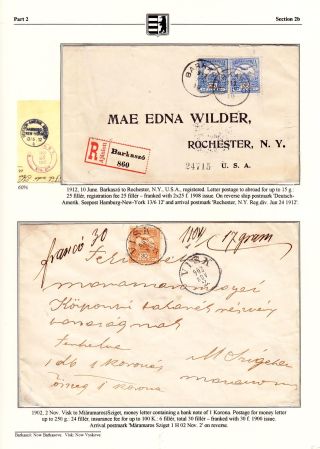 Part 2
Section 2b
60%
BARK
MAE EDNA WILDER,
ROCHESTER, N. Y.
24715
U. S. A.
R Ajánlott
Barkaszó
860
1912, 10 June. Barkaszó to Rochester, N.Y., U.S.A., registered. Letter postage to abroad for up to 15 g :
25 filler, registration fee 25 filler – franked with 2x25 f. 1908 issue. On reverse ship postmark 'Deutsch-
Amerik. Seepost Hamburg-New-York 13/6 12' and arrival postmark 'Rochester, N.Y. Reg.div. Jun 24 1912'.
francó 30
1104
17 gram
VISK
VISK
máramarosmegyei
Központi takarék részvény
társaságnak
Sziget
1 db 1 koronás
összeg 1 korona
1902, 2 Nov. Visk to MáramarosSziget, money letter containing a bank note of 1 Korona. Postage for money letter
up to 250 g : 24 filler, insurance fee for up to 100 K : 6 filler, total 30 filler – franked with 30 f. 1900 issue.
Arrival postmark 'Máramaros Sziget 1 H 02 Nov. 2' on reverse.
Barkaszó: Now Barkasovo. Visk: Now Vyskove.